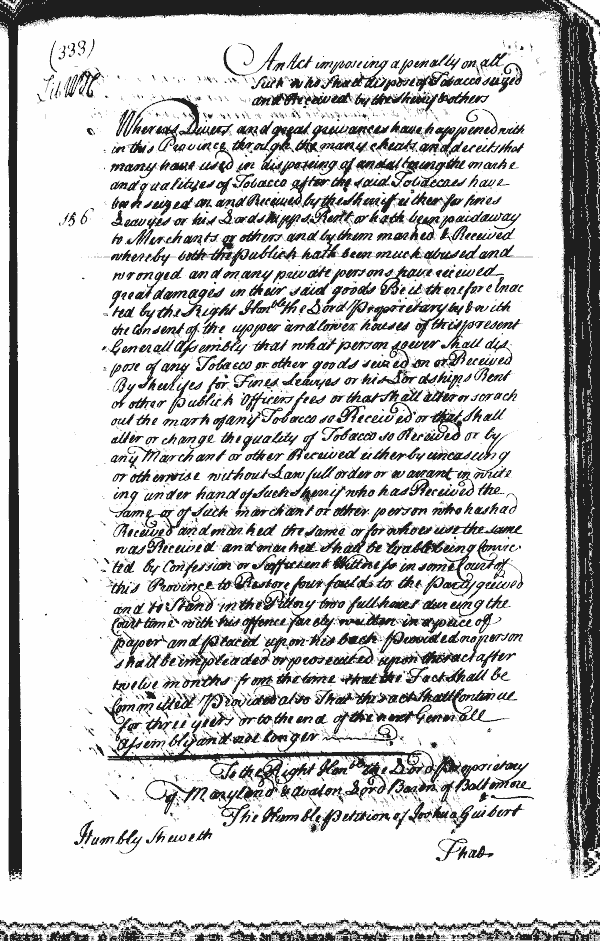 (333)
An Act imposing a penalty on all
Lib WH
Such who shall dispose of Tobacco seized
and Received by the Sheriff & others
Whereas Divers and great greivances have happened with
in this Province through the many cheats and deceits that
many have used in disposing of and altering the marke
and qualityes of Tobacco after the said Tobaccoes have
been seized on and Received by the Sheriff either for fines
156
Leavyes or his Lordshipps Rent or hath been paid away
to Merchants or others and by them marked & Received
whereby both the publick hath been much abused and
wronged and many private persons have received
great damages in their said goods Be it therefore Enac
ted by the Right Honble the Lord Proprietary by & with
the Consent of the upper and lower houses of this present
Generall Assembly that what person soever shall dis
pose of any Tobacco or other goods seized on or Received
By Sheriffes for Fines Leavyes or his Lordships Rent
or other publick Officers fees or that shall alter or scrach
out the mark of any Tobacco so Received or that shall
alter or change the quality of Tobacco so Received or by
any Merchant or other Received either by uncasing
or otherwise without Lawfull order or warrant in write
ing under hand of such Sheriff who has Received the
same or of such marchant or other person who has had
Received and marked the same or for whose use the same
was Received and marked Shall be lyable being Convic
ted by Confession or Sufficient Wittness in some Court of
this Province to Restore four fould to the party greived
and to Stand in the Pillory two full hours dureing the
Court time with his offence fairely written in a peice of
paper and placed upon his back Provided no person
shall be impleaded or prosecuted upon this act after
twelve months from the time that the Fact shall be
Committed Provided also that this act shall Continue
for three years or to the end of the next Generall
Assembly and not longer
To the Right Honble the Lord Proprietary
of Maryland & Avalon Lord Baron of Baltemore
The Humble Petition of Joshua Guibert
Humbly Sheweth
That